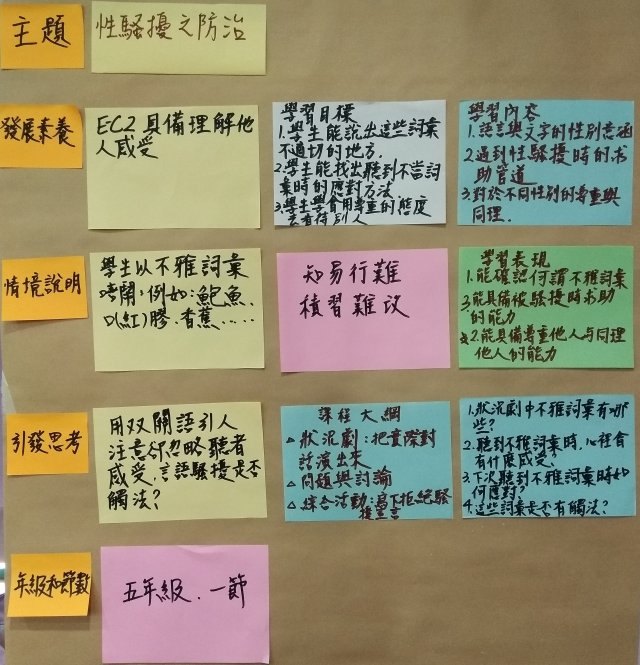 主題
性騷擾之防治
發展素養
EC2 具備理解他
人感受
學習目標
1.學生能說出這些詞彙
不適切的地方.
2.學生能找出聽到不當詞
彙時的應對方法
3.學生學會用尊重的態度
去看待別人
學習內容
1.語言與文字的性別意涵
2.遇到性騷擾時的求
助管道
3.對於不同性別的尊重與
同理.
情境說明
學生以不雅詞彙
嘻鬧,例如:鮑魚、
口(紅)膠.香蕉.....
知易行難
積習難改
學習表現
1.能確認何謂不雅詞彙
3.能具備被騷擾時求助
的能力
2.能具備尊重他人与同理
他人的能力
引發思考
用双關語引人
注意卻忽略聽者
感受,言語騷擾是否
觸法?
課程大綱
△狀況劇:把實際對
話演出來
△問題與討論
△綜合活動:寫下拒絕騷
擾宣言
1.狀況劇中不雅詞彙有哪
些?
2.聽到不雅詞彙時,心裡會
有什麼感受.
3.下次聽到不雅詞彙時如
何應對?
4.這些詞彙是否有觸法?
年級和節數
五年級.一節